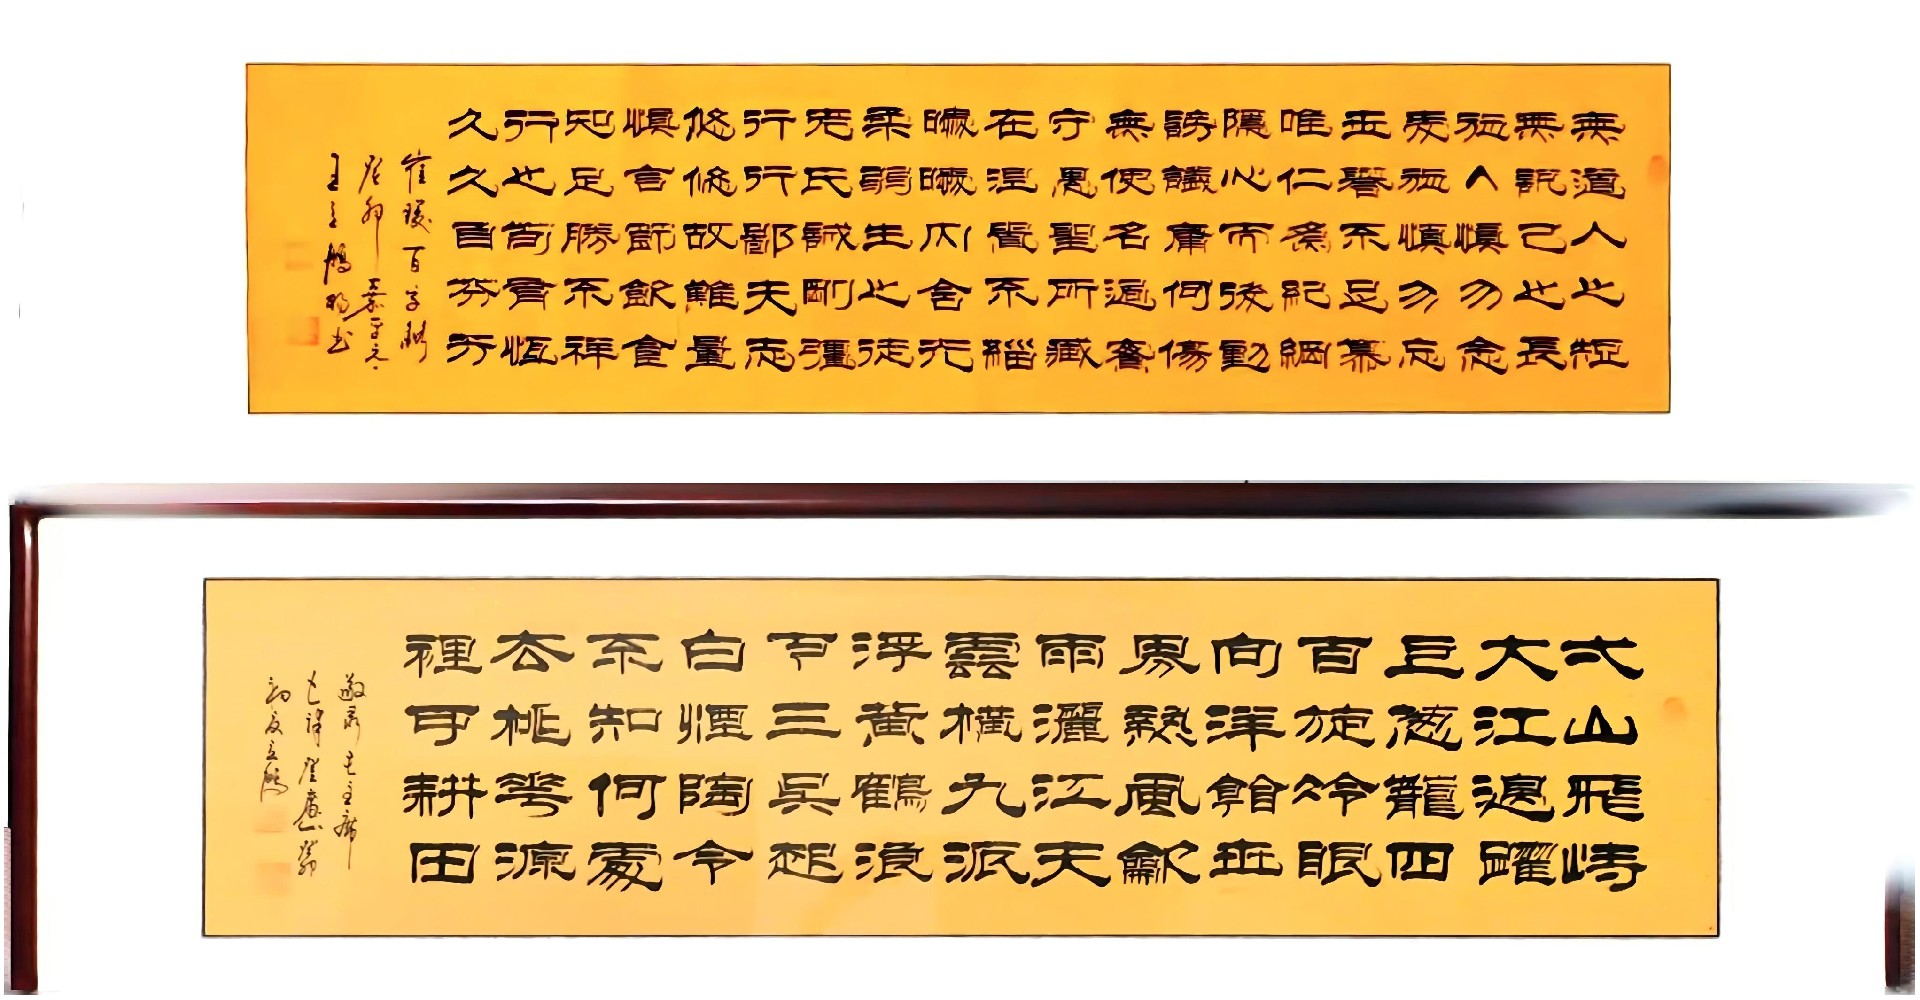 無道人之短
無說己之長
施人慎勿念
受施慎勿忘
世譽不足慕
唯仁為紀綱
隱心而後動
謗議庸何傷
無使名過實
守愚聖所臧
在涅貴不緇
曖曖內含光
柔弱生之徒
老氏誡剛彊
行行鄙夫志
悠悠故難量
慎言節飲食
知足勝不祥
行之苟有恆
久久自芬芳
崔瑗百字銘
癸卯
王立鵬
弌山飛峙
大江邊躍
上葱蘢四
百旋冷眼
向洋看世
界熱風歕
雨灑江天
雲橫九派
浮黃鶴浪
下三吳起
白煙陶令
不知何處
去桃花源
裡可耕田
敬录毛主席
七律登廬山
初夏立鵬